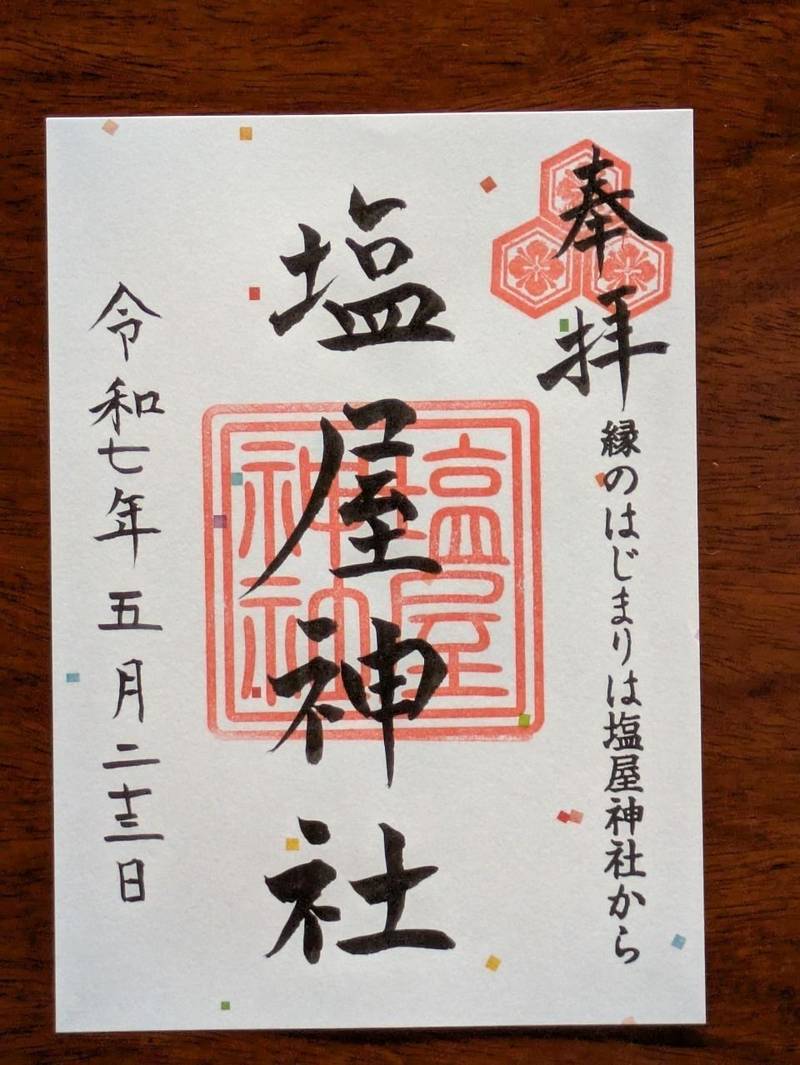 奉拝
縁のはじまりは塩屋神社から
塩屋神社
塩屋
神社
令和七年五月二十三日